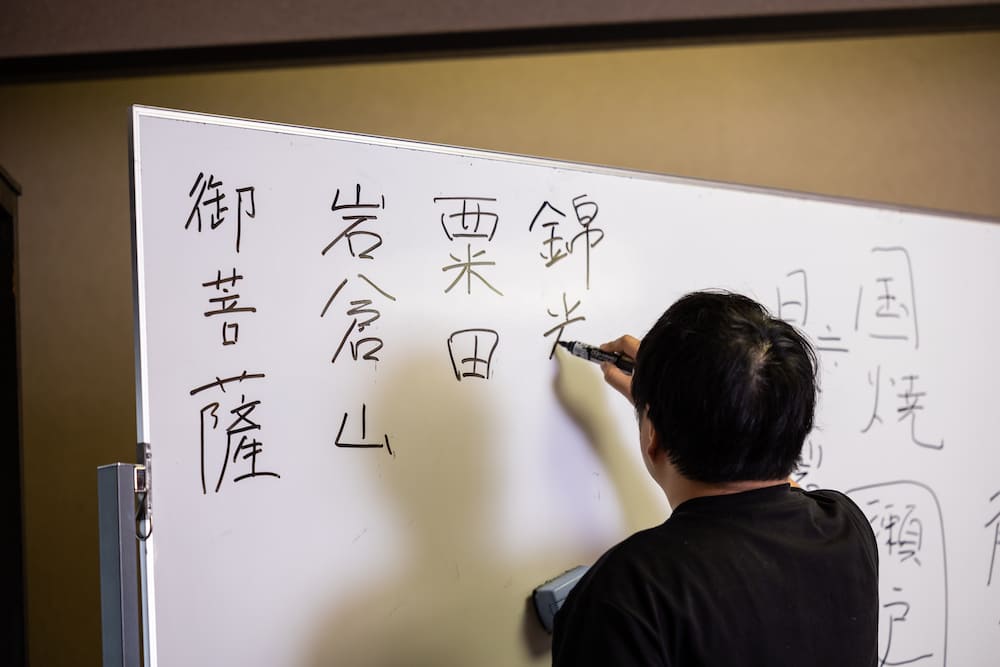 国焼
瀬戸
錦光
粟田
岩倉山
御菩薩